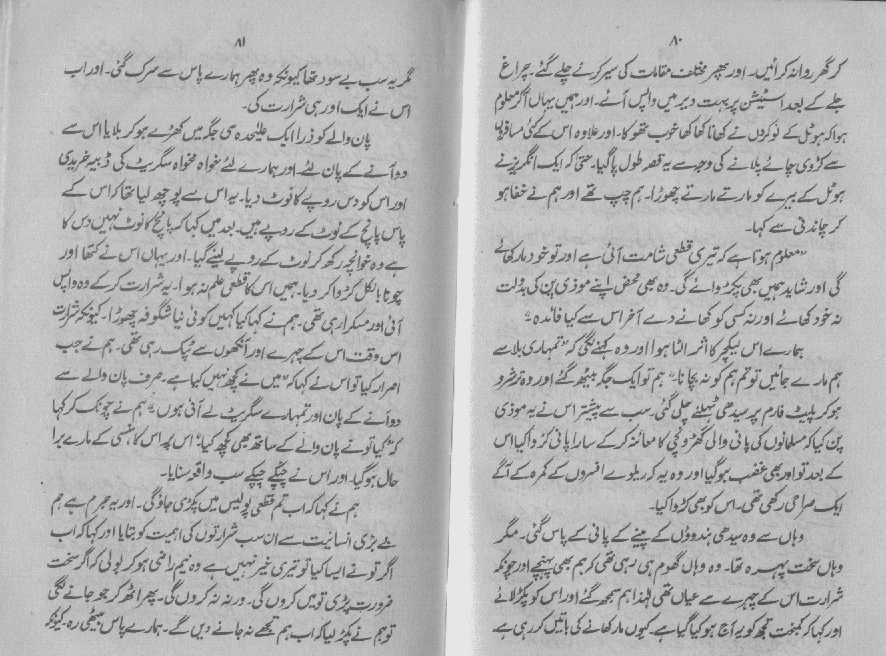 ۸۰
کر گھر روانہ کرائیں۔ اور پھر مختلف مقامات کی سیر کرنے چلے گئے۔ چراغ
جلے کے بعد اسٹیشن پر بہت دیر میں واپس آئے۔ اور ہمیں یہاں آکر معلوم
ہوا کہ ہوٹل کے نوکروں نے کھانا کھا کھا خوب تھوکا۔ اور علاوہ اس کے کئی مسافروں
سے کڑوی چائے پلانے کی وجہ سے یہ قصہ طول پا گیا۔ حتیٰ کہ ایک انگریز نے
ہوٹل کے بیرے کو مارتے مارتے چھوڑا۔ ہم چپ تھے اور ہم نے خفا ہو
کر چاندنی سے کہا۔
"معلوم ہوتا ہے کہ تیری قطعی شامت آئی ہے اور تو خود مار کھائے
گی اور شاید ہمیں بھی پکڑوائے گی۔ وہ بھی محض اپنے موذی پن کی بدولت
نہ خود کھائے اور نہ کسی کو کھانے دے آخر اس سے کیا فائدہ"
ہمارے اس لیکچر کا اثر الٹا ہوا اور وہ کہنے لگی کہ "تمہاری بلا سے
ہم مارے جائیں تو تم ہم کو نہ بچانا۔" ہم تو ایک جگہ بیٹھ گئے اور وہ ترشرو
ہو کر پلیٹ فارم پر سیدھی ٹہلنے چلی گئی۔ سب سے پیشتر اس نے یہ موذی
پن کیا کہ مسلمانوں کی پانی والی گھڑونچی کا معائنہ کر کے سارا پانی کڑوا کیا اس
کے بعد تو اور بھی غضب ہو گیا اور وہ یہ کہ ریلوے افسروں کے کمرہ کے آگے
ایک صراحی رکھی تھی۔ اس کو بھی کڑوا کیا۔
وہاں سے وہ سیدھی ہندوؤں کے پینے کے پانی کے پاس گئی۔ مگر
وہاں سخت پہرہ تھا۔ وہ وہاں گھوم ہی رہی تھی کہ ہم بھی پہنچے اور چونکہ
شرارت اس کے چہرے سے عیاں تھی لہٰذا ہم سمجھ گئے اور اس کو پکڑ لائے
اور کہا کہ کمبخت تجھ کو یہ آج ہو کیا گیا ہے۔ کیوں مار کھانے کی باتیں کر رہی ہے
۸۱
مگر یہ سب بے سود تھا کیونکہ وہ پھر ہمارے پاس سے سرک گئی۔ اور اب
اس نے ایک اور ہی شرارت کی۔
پان والے کو ذرا ایک علیٰحدہ سی جگہ میں کھڑے ہو کر بلایا اس سے
دو آنے کے پان لئے۔ اور ہمارے لئے خواہ مخواہ سگریٹ کی ڈبیہ خریدی
اور اس کو دس روپے کا نوٹ دیا۔ یہ اس سے پوچھ لیا تھا کہ اس کے
پاس پانچ کے نوٹ کے روپے ہیں۔ بعد میں کہا کہ پانچ کا نوٹ نہیں دس کا
ہے وہ خوانچہ رکھ کر نوٹ کے روپے لینے گیا۔ اور یہاں اس نے کتھا اور
چونا بالکل کڑوا کر دیا۔ ہمیں اس کا قطعی علم نہ ہوا۔ یہ شرارت کر کے وہ واپس
آئی اور مسکرا رہی تھی۔ ہم نے کہا کیا کہیں کوئی نیا شگوفہ پھوڑا۔ کیونکہ شرارت
اس وقت اس کے چہرے اور آنکھوں سے ٹپک رہی تھی۔ ہم نے جب
اصرار کیا تو اس نے کہا کہ "میں نے کچھ نہیں کیا ہے۔ صرف پان والے سے
دو آنے کے پان اور تمہارے سگریٹ لے آئی ہوں"۔ ہم نے چونک کر کہا
کہ "کیا تو نے پان والے کے ساتھ بھی کچھ کیا"۔ اس پر اس کا ہنسی کے مارے برا
حال ہو گیا۔ اور اس نے چپکے چپکے سب واقعہ سنایا۔
ہم نے کہا کہ اب تم قطعی پولیس میں پکڑی جاؤگی۔ اور یہ جرم ہے ہم
نے بڑی انسانیت سے ان سب شرارتوں کی اہمیت کو بتایا اور کہا کہ اب
اگر تو نے ایسا کیا تو تیری خیر نہیں ہے وہ نیم راضی ہو کر بولی کہ اگر سخت
ضرورت پڑی تو میں کروں گی۔ ورنہ نہ کروں گی۔ پھر اٹھ کر جو جانے لگی
تو ہم نے پکڑ لیا کہ اب ہم تجھے نہ جانے دیں گے۔ ہمارے پاس بیٹھی رہ۔ کیونکہ